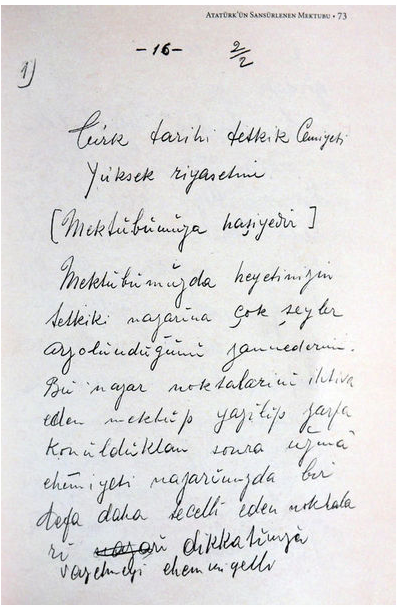 ATATÜRK'ÜN SANSÜRLENEN MEKTUBU • 73
-16- 2/2
1)
Türk tarihi tetkik Cemiyeti
Yüksek riyasetine
[Mektûbûmûza haşiyedir]
Mektûbûmûzda heyetinizin
tetkiki nazarına çok şeyler
arzolûndûğûnû zannederim.
Bû nazar noktalarını ihtiva
eden mektûp yazılıp zarfa
konûldûktan sonra
ehemiyeti nazarımızda bir
defa daha tecelli eden noktala
rı dikkatinize
vazetmeği ehemmiyetli